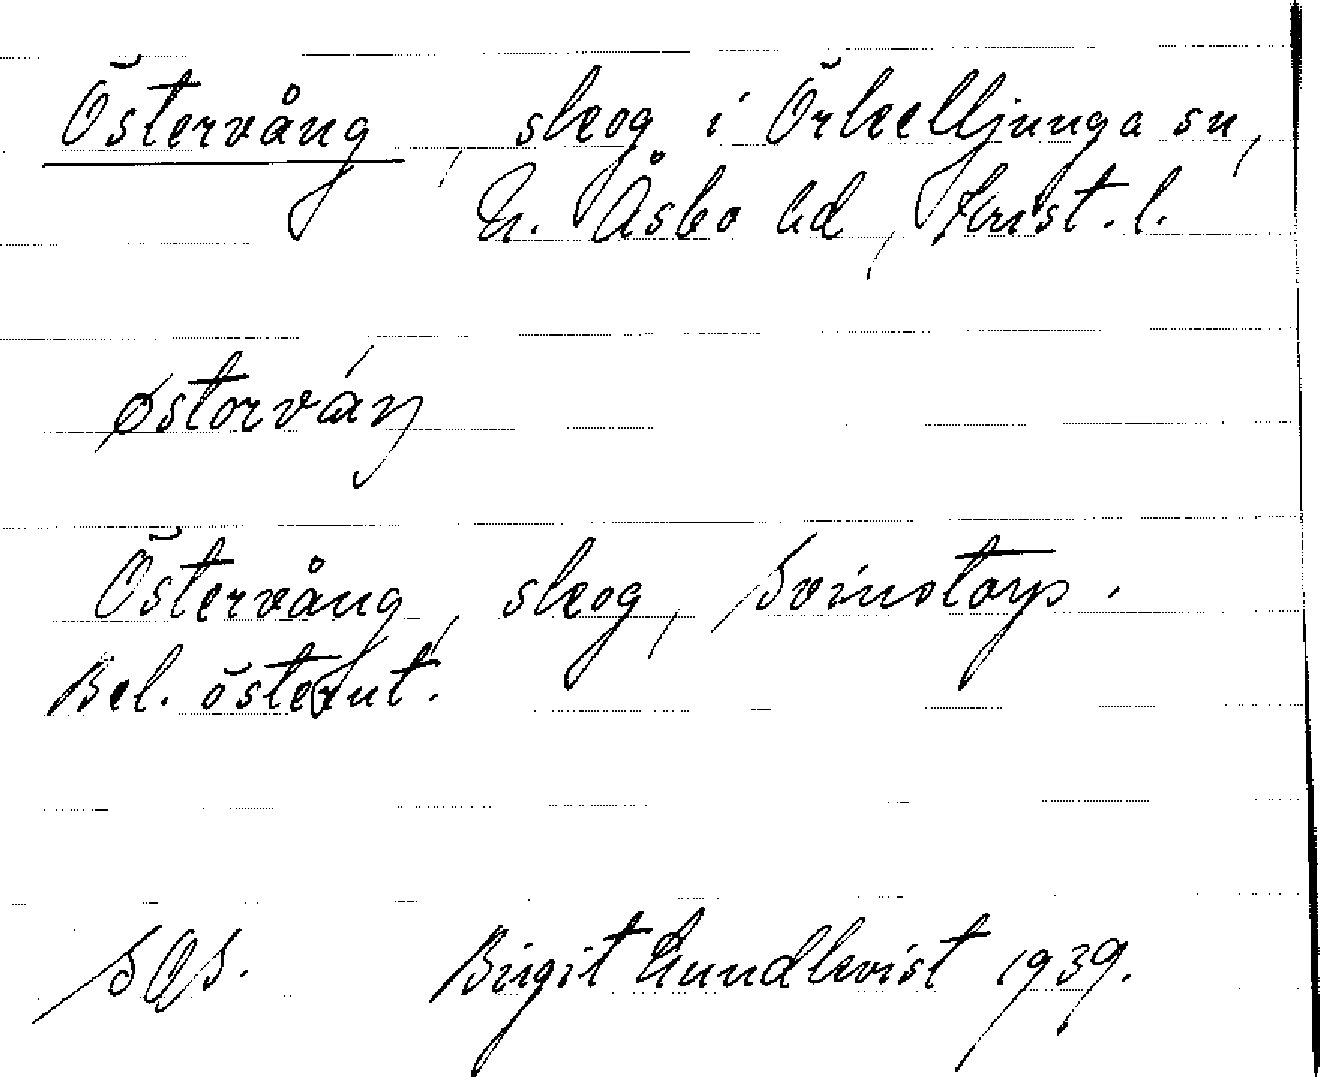 Östervång, skog i Örkelljunga sn,
N. Åsbo hd, Krist. l.
østorváŋ
Östervång, skog, Svinstorp.
Bel. österut.
Birgit Lundkvist 1939.